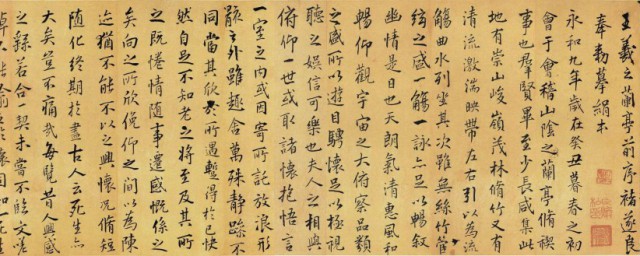 王羲之蘭亭前序褚遂良
奉勑摹絹本
永和九年歲在癸丑暮春之初
會于會稽山陰之蘭亭脩禊
事也羣賢畢至少長咸集此
地有崇山峻嶺茂林脩竹又有
清流激湍映帶左右引以為流
觴曲水列坐其次雖無絲竹管
絃之盛一觴一詠亦足以暢敘
幽情是日也天朗氣清惠風和
暢仰觀宇宙之大俯察品類
之盛所以遊目騁懷足以極視
聽之娛信可樂也夫人之相與
俯仰一世或取諸懷抱悟言
一室之內或因寄所託放浪形
骸之外雖趣舍萬殊靜躁不
同當其欣於所遇暫得於己快
然自足不知老之將至及其所
之既惓情隨事遷感慨係之
矣向之所欣俛仰之間以為陳
迹猶不能不以之興懷況脩短
隨化終期於盡古人云死生亦
大矣豈不痛哉每覽昔人興感
之緣若合一契未嘗不臨文嗟